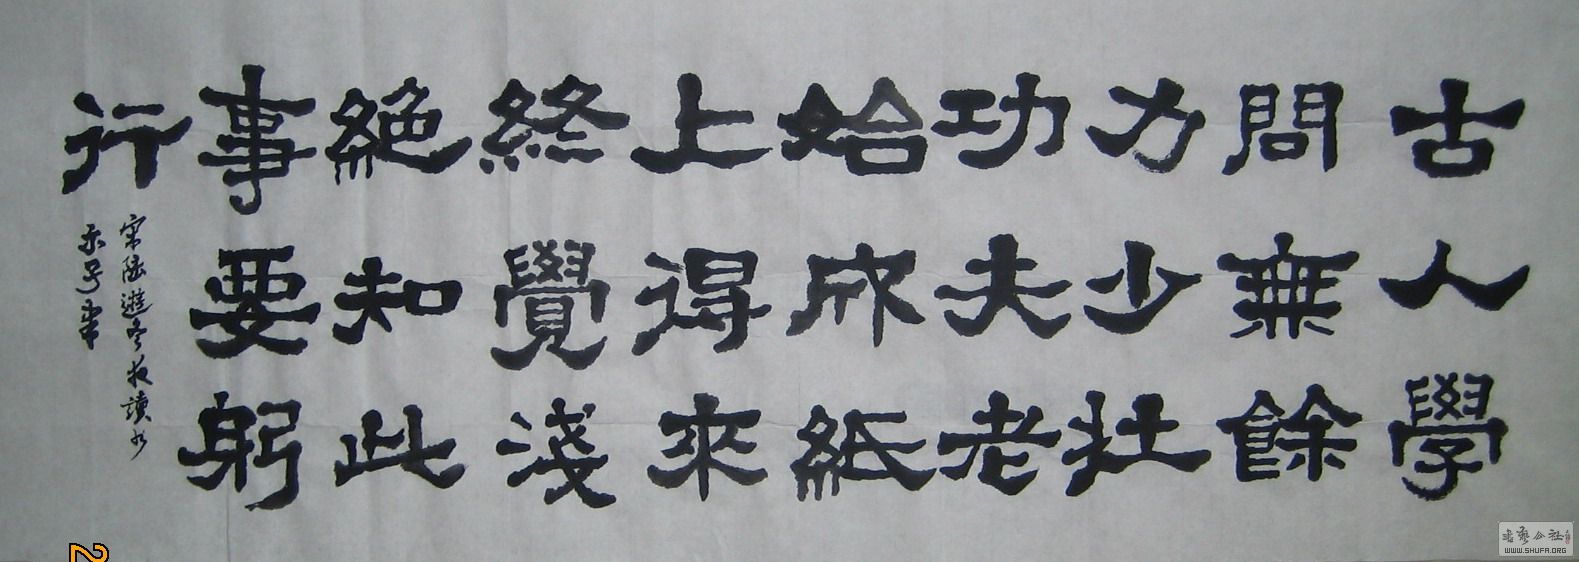 古人學
問無餘
力少壯
功夫老
始成紙
上得來
終覺淺
絕知此
事要躬
行
宋陸遊冬夜讀书
示子聿
書藝公社
WWW.SHUFA.ORG
2